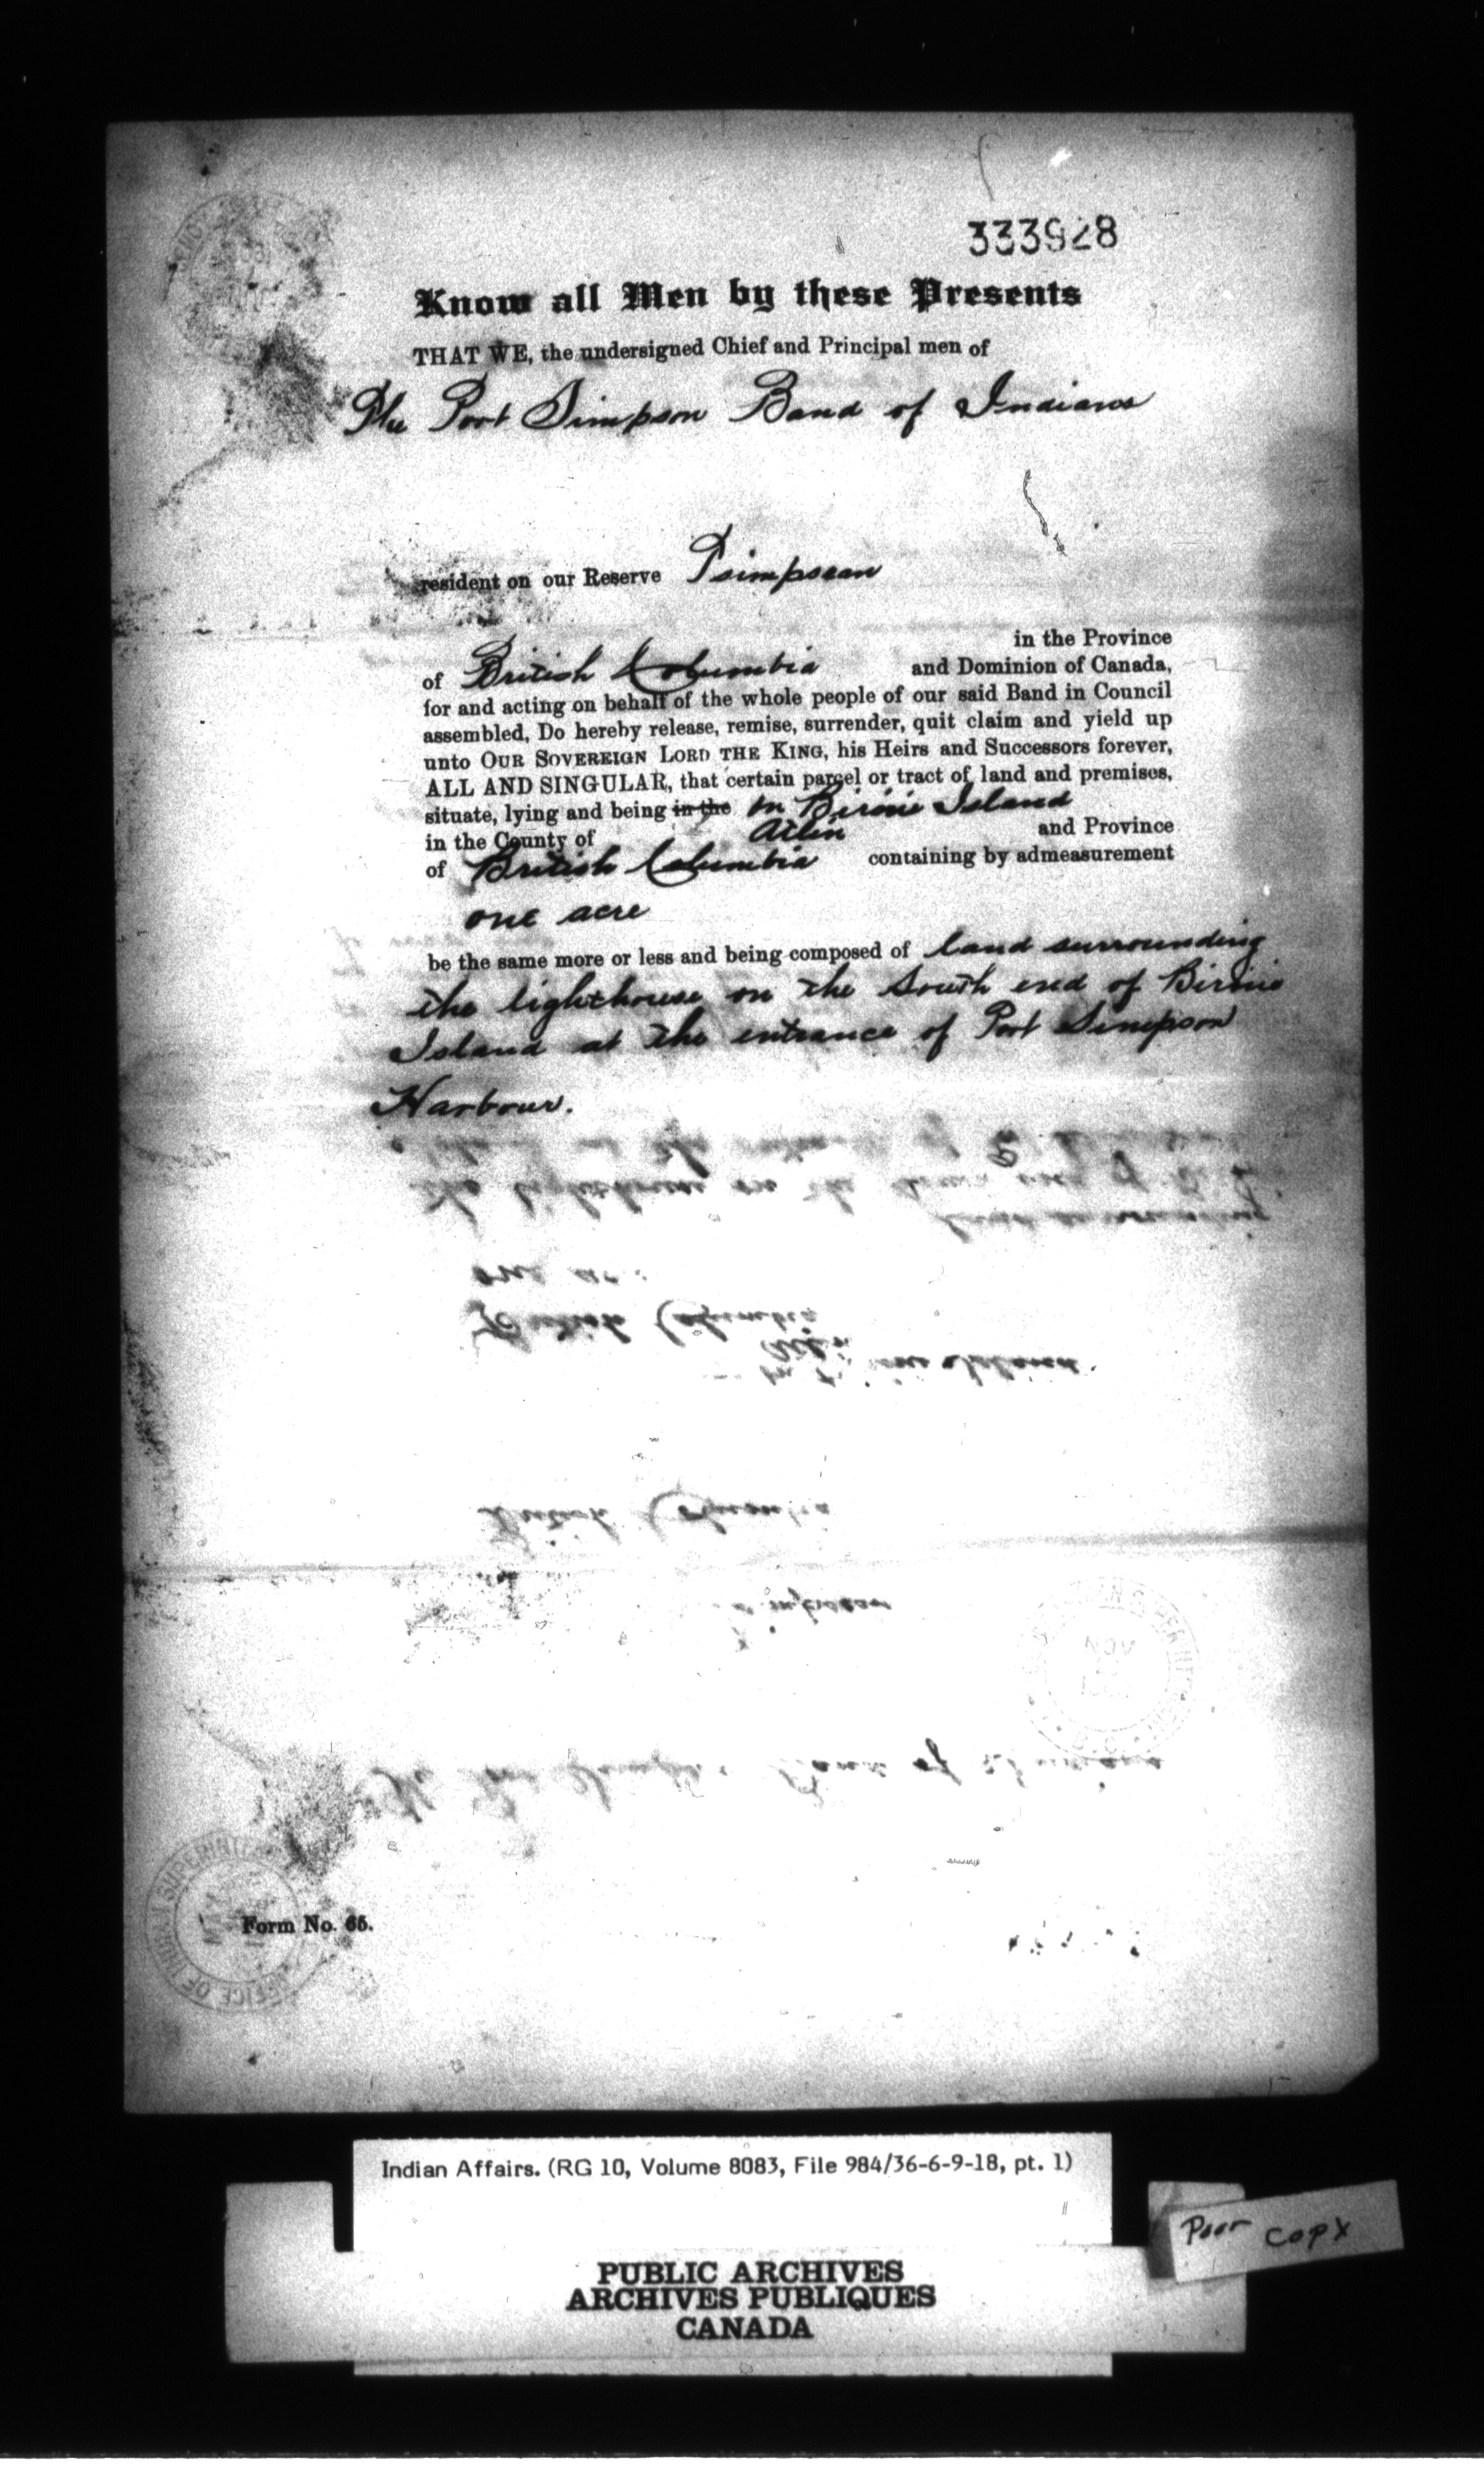 333928
Know all Men by these Presents
THAT WE, the undersigned Chief and Principal men of
The Port Simpson Band of Indians
resident on our Reserve Tsimpsean
in the Province
of British Columbia and Dominion of Canada,
for and acting on behalf of the whole people of our said Band in Council
assembled, Do hereby release, remise, surrender, quit claim and yield up
unto OUR SOVEREIGN LORD THE KING, his Heirs and Successors forever,
ALL AND SINGULAR, that certain parcel or tract of land and premises,
situate, lying and being in the on Birnie Island
in the County of Atlin and Province
of British Columbia containing by admeasurement
one acre
be the same more or less and being composed of land surrounding
the lighthouse on the South end of Birnie
Island at the entrance of Port Simpson
Harbour.
Form No. 65.
Indian Affairs. (RG 10, Volume 8083, File 984/36-6-9-18, pt. 1)
Poor copy
PUBLIC ARCHIVES
ARCHIVES PUBLIQUES
CANADA